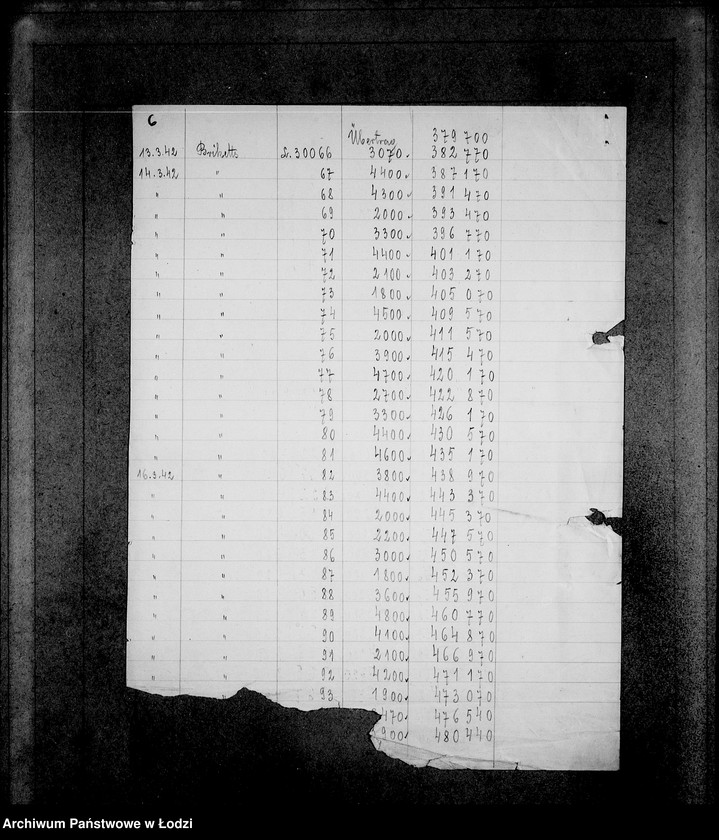 6
Übertrag 379 700
13.3.42 Briketts L. 30066 3070. 382 770
14.3.42 " 67 4400 387 170
" " 68 4300 391 470
" " 69 2000 393 470
" " 70 3300 396 770
" " 71 4400 401 170
" " 72 2100 403 270
" " 73 1800 405 070
" " 74 4500 409 570
" " 75 2000 411 570
" " 76 3900 415 470
" " 77 4700 420 170
" " 78 2700 422 870
" " 79 3300 426 170
" " 80 4400 430 570
" " 81 4600 435 170
16.3.42 " 82 3800 438 970
" " 83 4400 443 370
" " 84 2000 445 370
" " 85 2200 447 570
" " 86 3000 450 570
" " 87 1800 452 370
" " 88 3600 455 970
" " 89 4800 460 770
" " 90 4100 464 870
" " 91 2100 466 970
" " 92 4200 471 170
" " 93 1900 473 070
470 476 540
900 480 440
Archiwum Państwowe w Łodzi